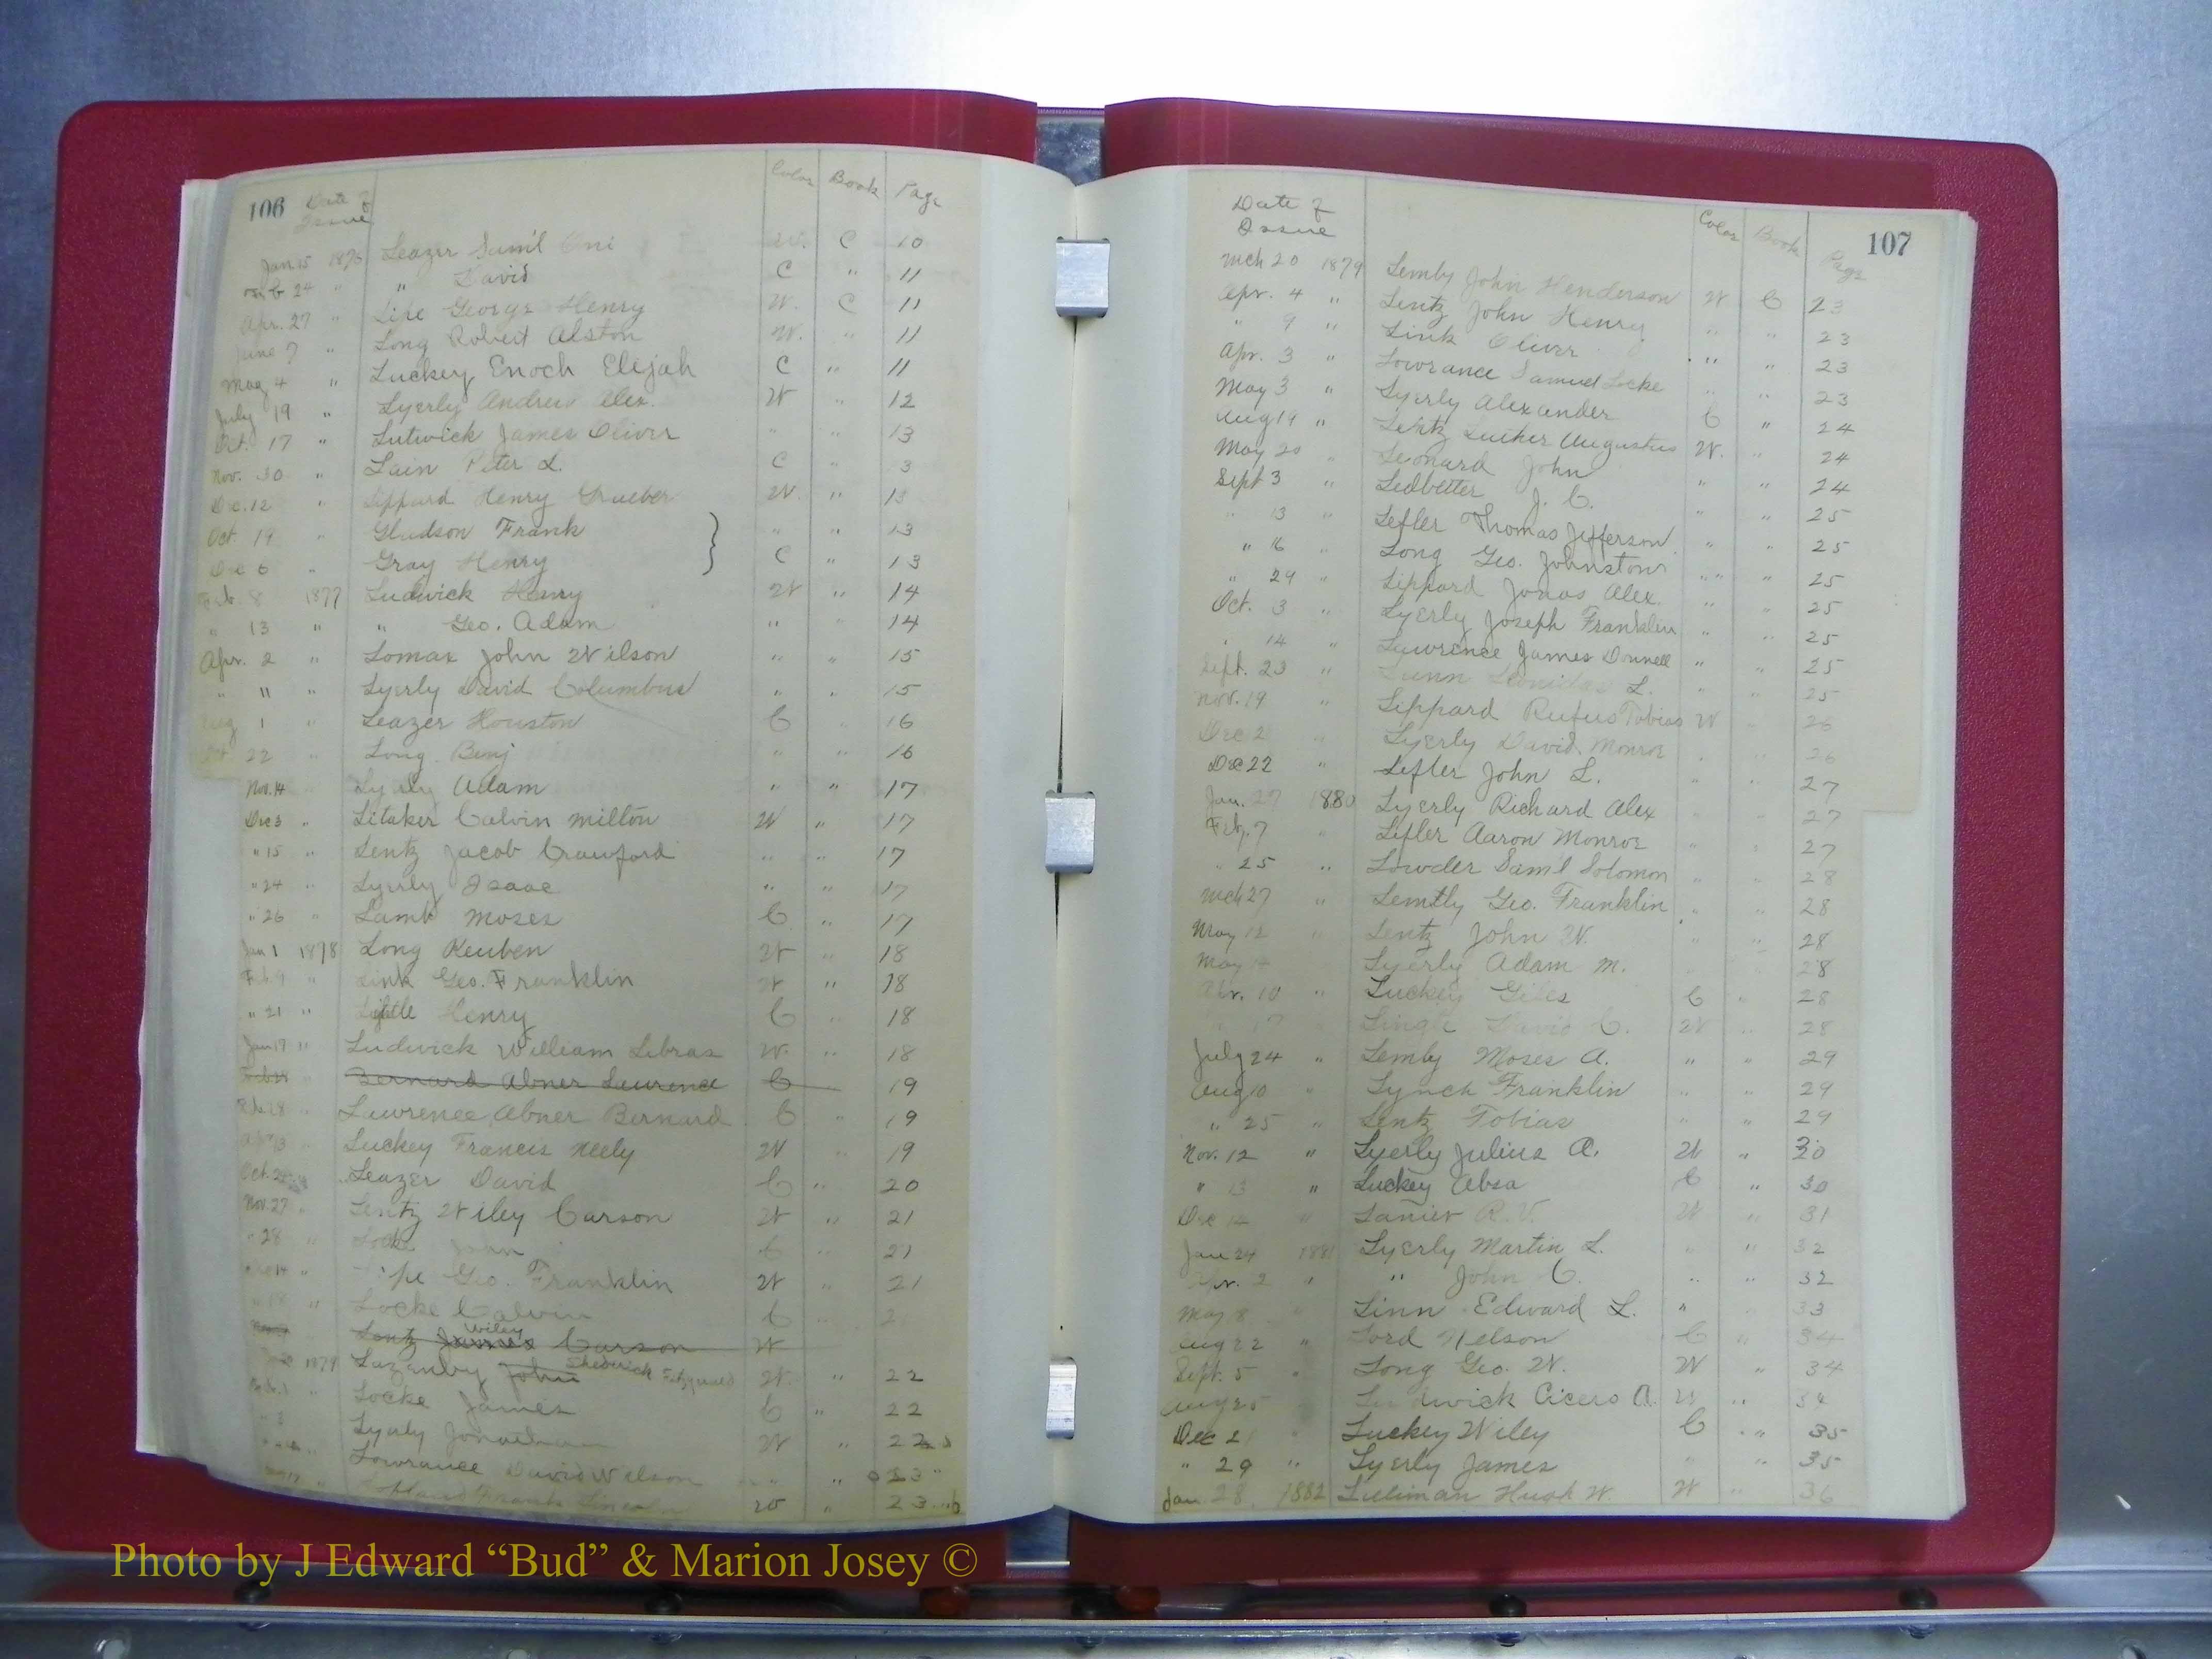 106 Date of Issue Color Book Page
Jan 15 1876 Leazer Saml W. C 10
24 " " David C " 11
Apr. 27 " Lipe George Henry W. C 11
June 7 " Long Robert Alston W. " 11
May 4 " Luckey Enoch Elijah C " 11
July 19 " Lyerly Andrew Alex. W " 12
Oct. 17 " Lutwick James Oliver " " 13
Nov. 30 " Lain Peter L. C " 13
Dec. 12 " Lippard Henry Graeber W. " 13
Oct. 19 " Gludson Frank } " " 13
Dec 6 " Gray Henry C " 13
Feb. 8 1877 Ludwick Henry W " 14
" 13 " " Geo. Adam " " 14
Apr. 2 " Lomax John Wilson " " 15
" 11 " Lyerly David Columbus " " 15
Aug 1 " Leazer Houston C " 16
Oct 22 " Long Benj " " 16
Nov. 14 Lyerly Adam " " 17
Dec 3 " Litaker Calvin Milton W " 17
" 15 " Lentz Jacob Crawford " " 17
" 24 " Lyerly Isaac " " 17
" 26 " Lamb Moses C " 17
Jan 1 1878 Long Reuben W " 18
Feb. 9 " Link Geo. Franklin W " 18
" 21 " Little Henry C " 18
Jan 17 " Ludwick William Libras W. " 18
Bernard Abner Laurence C 19
Feb 28 " Lawrence Abner Bernard C " 19
Apr 13 " Luckey Francis Neely W " 19
Oct. Leazer David C " 20
Nov. 27 " Lentz Wiley Carson W " 21
" 28 " Locke John C " 21
14 " Lipe Geo. Franklin W " 21
" 18 " Locke Calvin C " 2
Lentz James Wiley Carson W
1879 Lazenby John Shederick Fitzgerald W. " 22
Locke James C " 22
" 3 Lyerly Jonathan W " 22
Lowrance David Wilson " " 23
Frank Lincoln W " 23
Date of Issue Color Book Page 107
Mch 20 1879 Lemly John Henderson W C 23
Apr. 4 " Lentz John Henry " " 23
" 9 " Link Oliver " " 23
Apr. 3 " Lowrance Samuel Locke " " 23
May 3 " Lyerly Alexander C " 24
Aug 19 " Lentz Luther Augustus W. " 24
May 20 " Leonard John " " 24
Sept 3 " Ledbetter J. C. " " 25
" 13 " Lefler Thomas Jefferson " " 25
" 16 " Long Geo. Johnston " " 25
" 29 " Lippard Jonas Alex. " " 25
Oct. 3 " Lyerly Joseph Franklin " " 25
" 14 " Lawrence James Donnell " " 25
Sept. 23 " Lunn Leonidas L. " " 25
Nov. 19 " Lippard Rufus Tobias W " 26
Dec 2 " Lyerly David Monroe " " 26
Dec 22 " Lefler John L. " " 27
Jan. 27 1880 Lyerly Richard Alex " " 27
Feb. 7 " Lefler Aaron Monroe " " 27
" 25 " Lowder Saml Solomon " " 28
Mch 27 " Lemly Geo. Franklin " " 28
May 12 " Lentz John W. " " 28
May 14 Lyerly Adam M. " " 28
Apr. 10 " Luckey Giles C " 28
" 17 " Lingle David C. W " 28
July 24 " Lemly Moses A. " " 29
Aug 10 " Lynch Franklin " " 29
" 25 " Lentz Tobias " " 29
Nov. 12 " Lyerly Julius A. W " 30
" 13 " Luckey Absa C " 30
Dec 14 " Lanier R. V. W " 31
Jan 24 1881 Lyerly Martin L. " " 32
Apr. 2 " " John C. " " 32
May 8 " Linn Edward L. " " 33
Aug 22 " Lord Nelson C " 34
Sept. 5 " Long Geo. W. W " 34
Aug 25 Ludwick Cicero A. W " 34
Dec 21 " Luckey Wiley C " 35
" 29 " Lyerly James " " 35
Jan. 28 1882 Hugh W. W " 36
Photo by J Edward “Bud” & Marion Josey ©